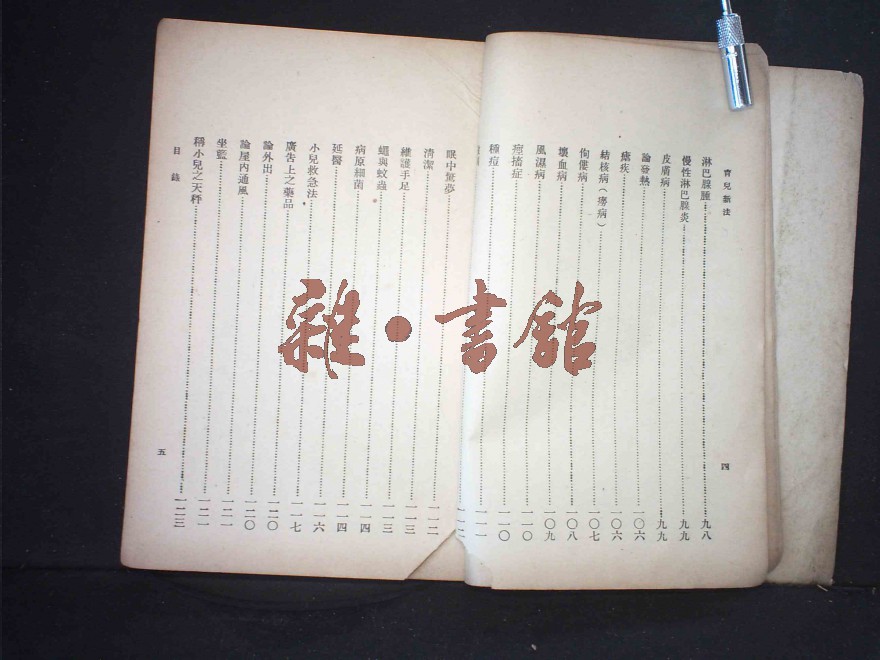 育兒新法
淋巴腺腫……九八
慢性淋巴腺炎……九九
皮膚病……九九
論發熱……一〇六
瘧疾……一〇六
結核病(癆病)……一〇七
佝僂病……一〇八
壞血病……一〇九
風濕病……一一〇
痙搐症……一一〇
種痘……一一一
一一二
四
眠中驚夢……一一二
清潔……一一三
維護手足……一一三
蠅與蚊蟲……一一四
病原細菌……一一四
延醫……一一六
小兒救急法……一一七
廣告上之藥品……一二〇
論外出……一二〇
論屋內通風……一二一
坐籃……一二一
稱小兒之天秤……一二三
目錄
五
雜·書館